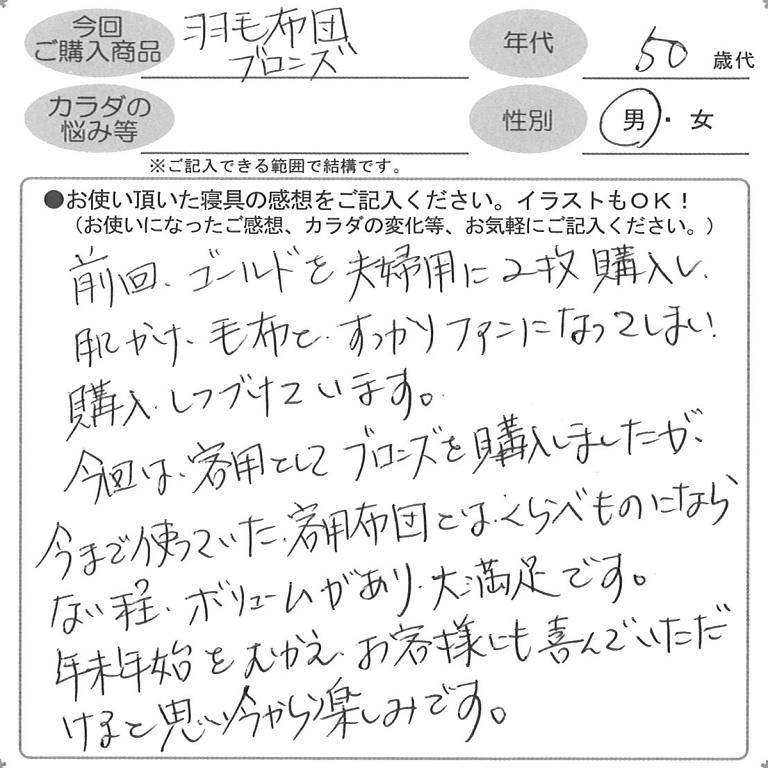 今回
ご購入商品
羽毛布団
ブロンズ
年代
50 歳代
カラダの
悩み等
性別
男・女
※ご記入できる範囲で結構です。
●お使い頂いた寝具の感想をご記入ください。イラストもOK!
(お使いになったご感想、カラダの変化等、お気軽にご記入ください。)
前回、ゴールドを夫婦用に2枚購入し、
肌かけ、毛布と、すっかりファンになってしまい
購入しつづけています。
今回は、客用としてブロンズを購入しましたが、
今まで使っていた、客用布団とは、くらべものになら
ない程、ボリュームがあり、大満足です。
年末年始をむかえ、お客様にも喜んでいただ
けると思い今から楽しみです。